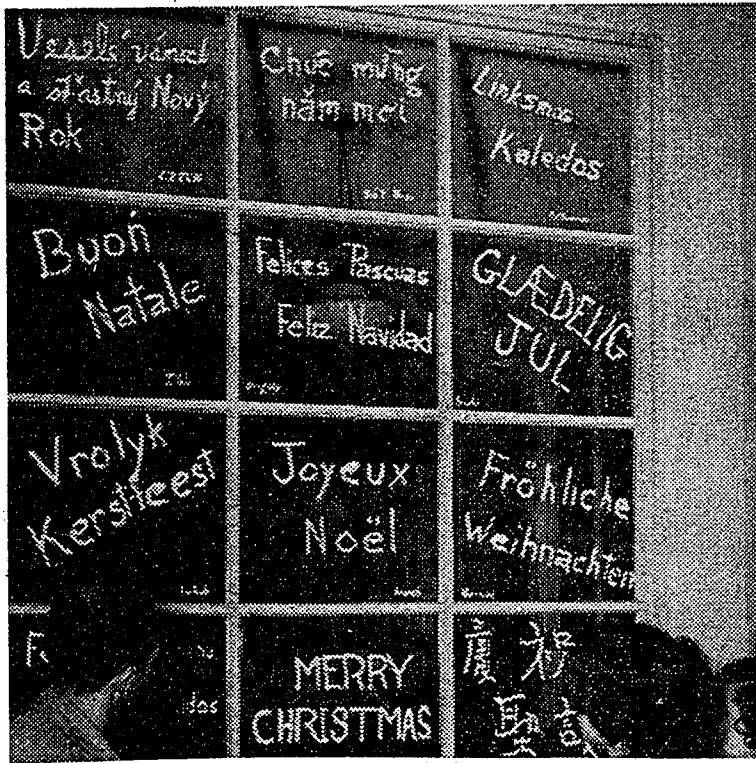 Veselé vánoce
a šťastný Nový
Rok
CZECH
Chúc mừng
năm mới
Linksmas
Kaledos
Buon
Natale
Felices Pascuas
Feliz Navidad
GLÆDELIG
JUL
Vrolyk
Kerstfeest
Joyeux
Noël
Fröhliche
Weihnachten
MERRY
CHRISTMAS
慶祝
聖